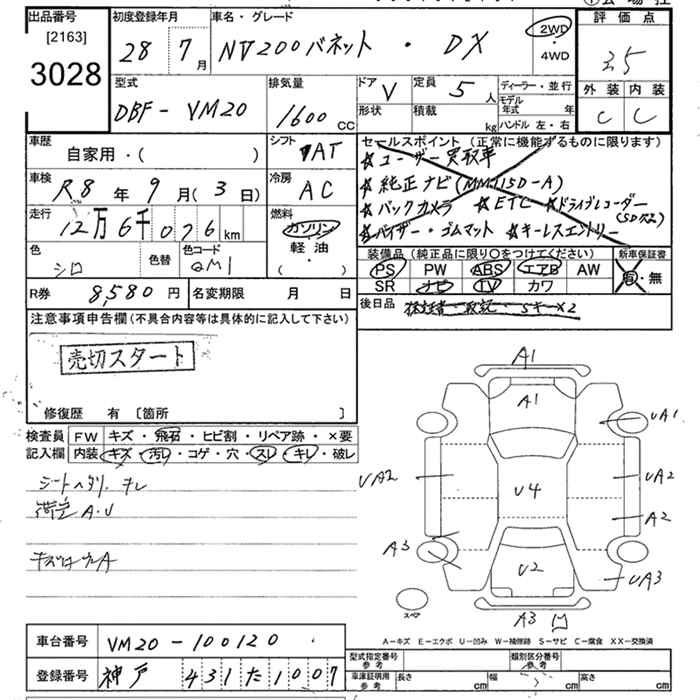 出品番号 初度登録年月 車名・グレード 2WD 評価点
[2163]
3028 28 7月 NV200バネット・DX ・4WD 3.5
型式 排気量 ドア V 定員 5人 ディーラー・並行 外装 内装
DBF-VM20 1600 CC 形状 積載 kg モデル年式 年 C C
ハンドル 左・右
車歴 シフト セールスポイント(正常に機能するものに限ります)
自家用・( ) AT ☆ユーザー買取車
車検 R8年9月(3日) 冷房 AC ☆純正ナビ(MM115D-A)
☆バックカメラ ☆ETC ☆ドライブレコーダー
走行 12万6千076km 燃料 ガソリン ☆バイザー・ゴムマット ☆キーレスエントリー
軽油
・( )
色 シロ 色替 色コード QM1 装備品(純正品に限り○をつけてください) 新車保証書
PS PW ABS エアB AW 有・無
R券 8,580円 名変期限 月 日 SR ナビ TV カワ
注意事項申告欄(不具合内容等は具体的に記入して下さい) 後日品
売切スタート
修復歴 有 〔箇所 〕
検査員 FW キズ・飛石・ヒビ割・リペア跡・×要
記入欄 内装 キズ・汚レ・コゲ・穴・スレ・キレ・破レ
シートヘタリ、キレ
A・U
A1
A1
UA1
UA2
U4
UA2
A2
A3
U2
UA3
スペア
A3
A-キズ E-エクボ U-凹み W-補修跡 S-サビ C-腐食 XX-交換済
車台番号 VM20-100120
型式指定番号 参考 類別区分番号 参考
登録番号 神戸 431た1007
車庫証明用 参考 長さ cm 幅 cm 高さ cm